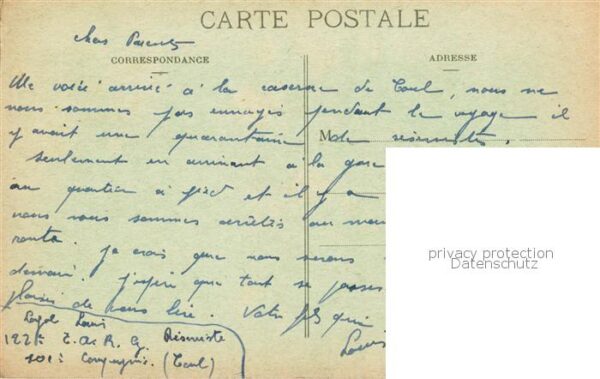 CARTE POSTALE
chers Parents
CORRESPONDANCE
ADRESSE
Me voici arrivé à la caserne de Toul, nous ne
nous sommes pas ennuyés pendant le voyage il
y avait une quarantaine de réservistes.
M
seulement en arrivant à la gare
au quartier à pied et il y a
nous nous sommes arrêtés au
route.
je crois que nous serons
demain. j'espère que tout se passes
plaisir de vous lire. Votre fils qui
Louis
Louis
122e E. de R. G. Réserviste
101e Compagnie. (Toul)
privacy protection
Datenschutz